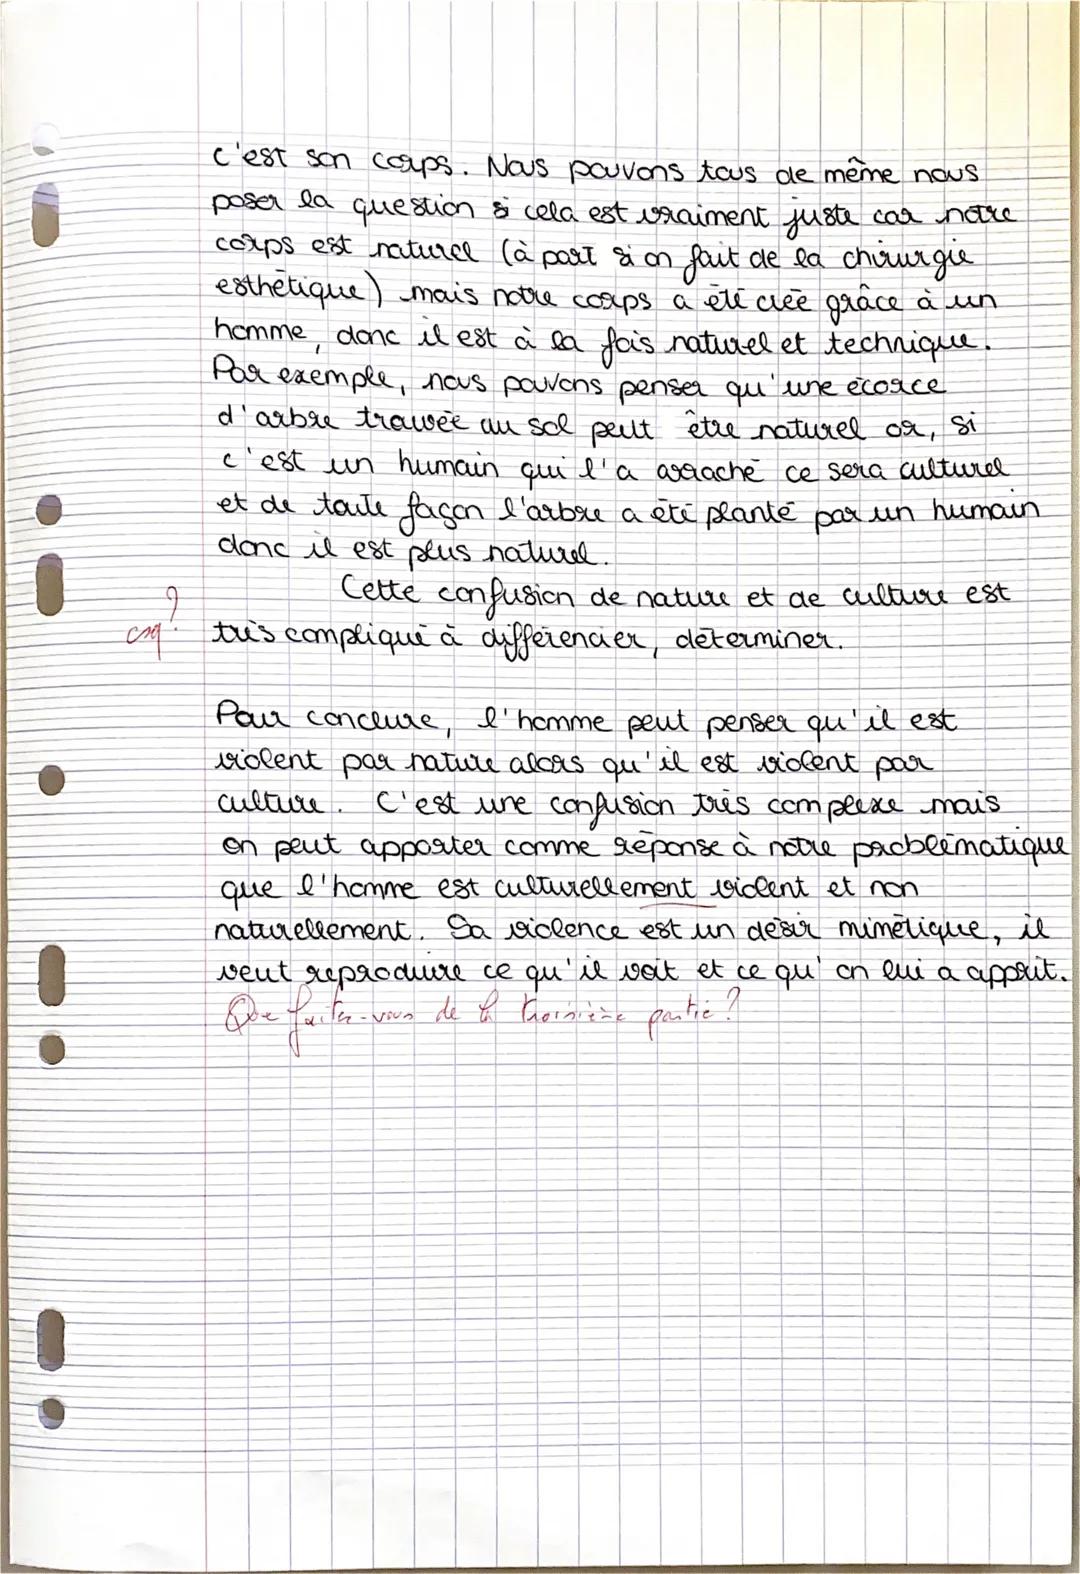 c'est son corps. Nous pouvons tous de même nous
poser la question si cela est vraiment juste car notre
corps est naturel (à part si on fait de la chirurgie
esthétique) mais notre corps a été créé grâce à un
homme, donc il est à la fois naturel et technique.
Par exemple, nous pouvons penser qu'une écorce
d'arbre trouvée au sol peut être naturel or, si
c'est un humain qui l'a arraché ce sera culturel
et de toute façon l'arbre a été planté par un humain
donc il est plus naturel.
Cette confusion de nature et de culture est
csq? très compliqué à différencier, déterminer.
Pour conclure, l'homme peut penser qu'il est
violent par nature alors qu'il est violent par
culture. C'est une confusion très complexe mais
on peut apporter comme réponse à notre problématique
que l'homme est culturellement violent et non
naturellement. Sa violence est un désir mimétique, il
veut reproduire ce qu'il voit et ce qu'on lui a apprit.
Que faites-vous de la troisième partie ?